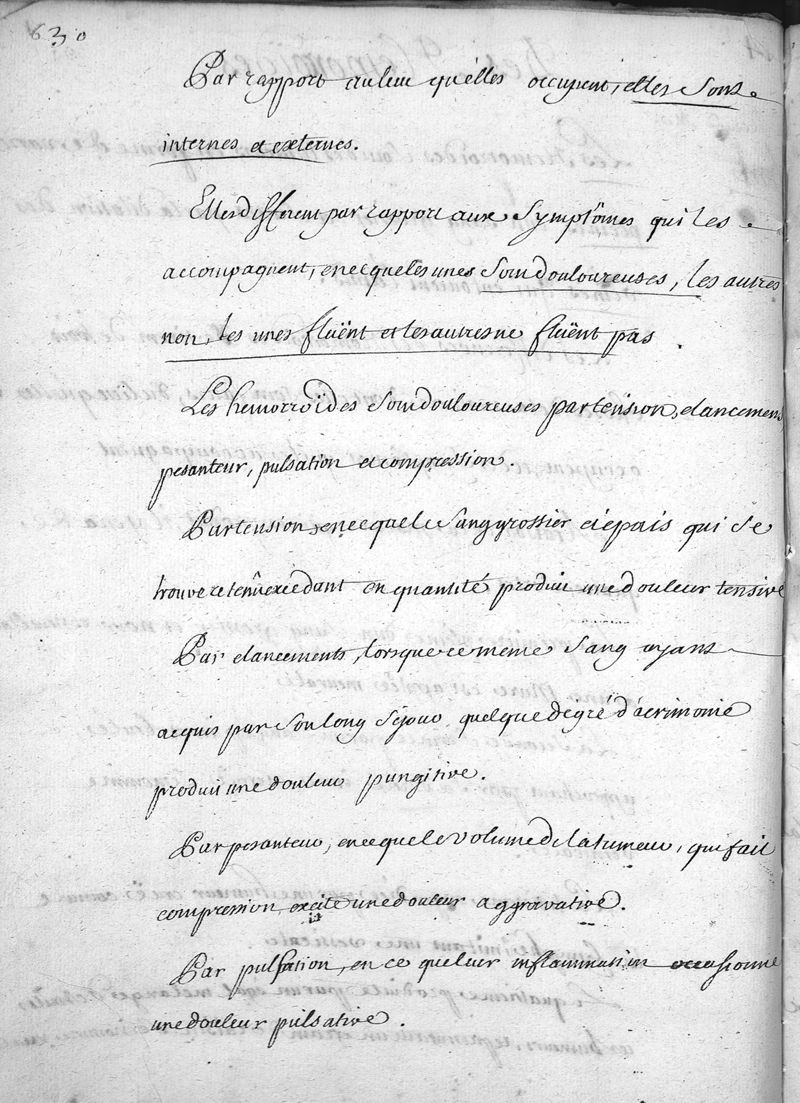 630
Par rapport au lieu qu'elles occupent, elles Sont
internes et externes.
Elles different par rapport aux Symptômes qui les
accompagnent, en ce que les unes Sont douloureuses, les autres
non, les unes fluënt et les autres ne fluënt pas.
Les hemorroïdes Sont douloureuses par tension, elancement
pesanteur, pulsation et compression.
Par tension, en ce que le Sang grossier et épais qui Se
trouve retenû excedant en quantité produit une douleur tensive
Par elancements, lorsque ce meme Sang ayant
acquis par Son long Séjour quelque degré d'acrimonie
produit une douleur pungitive.
Par pesanteur, en ce que le volume de la tumeur, qui fait
compression, excite une douleur aggravative.
Par pulsation, en ce que leur inflammation occasionne
une douleur pulsative.